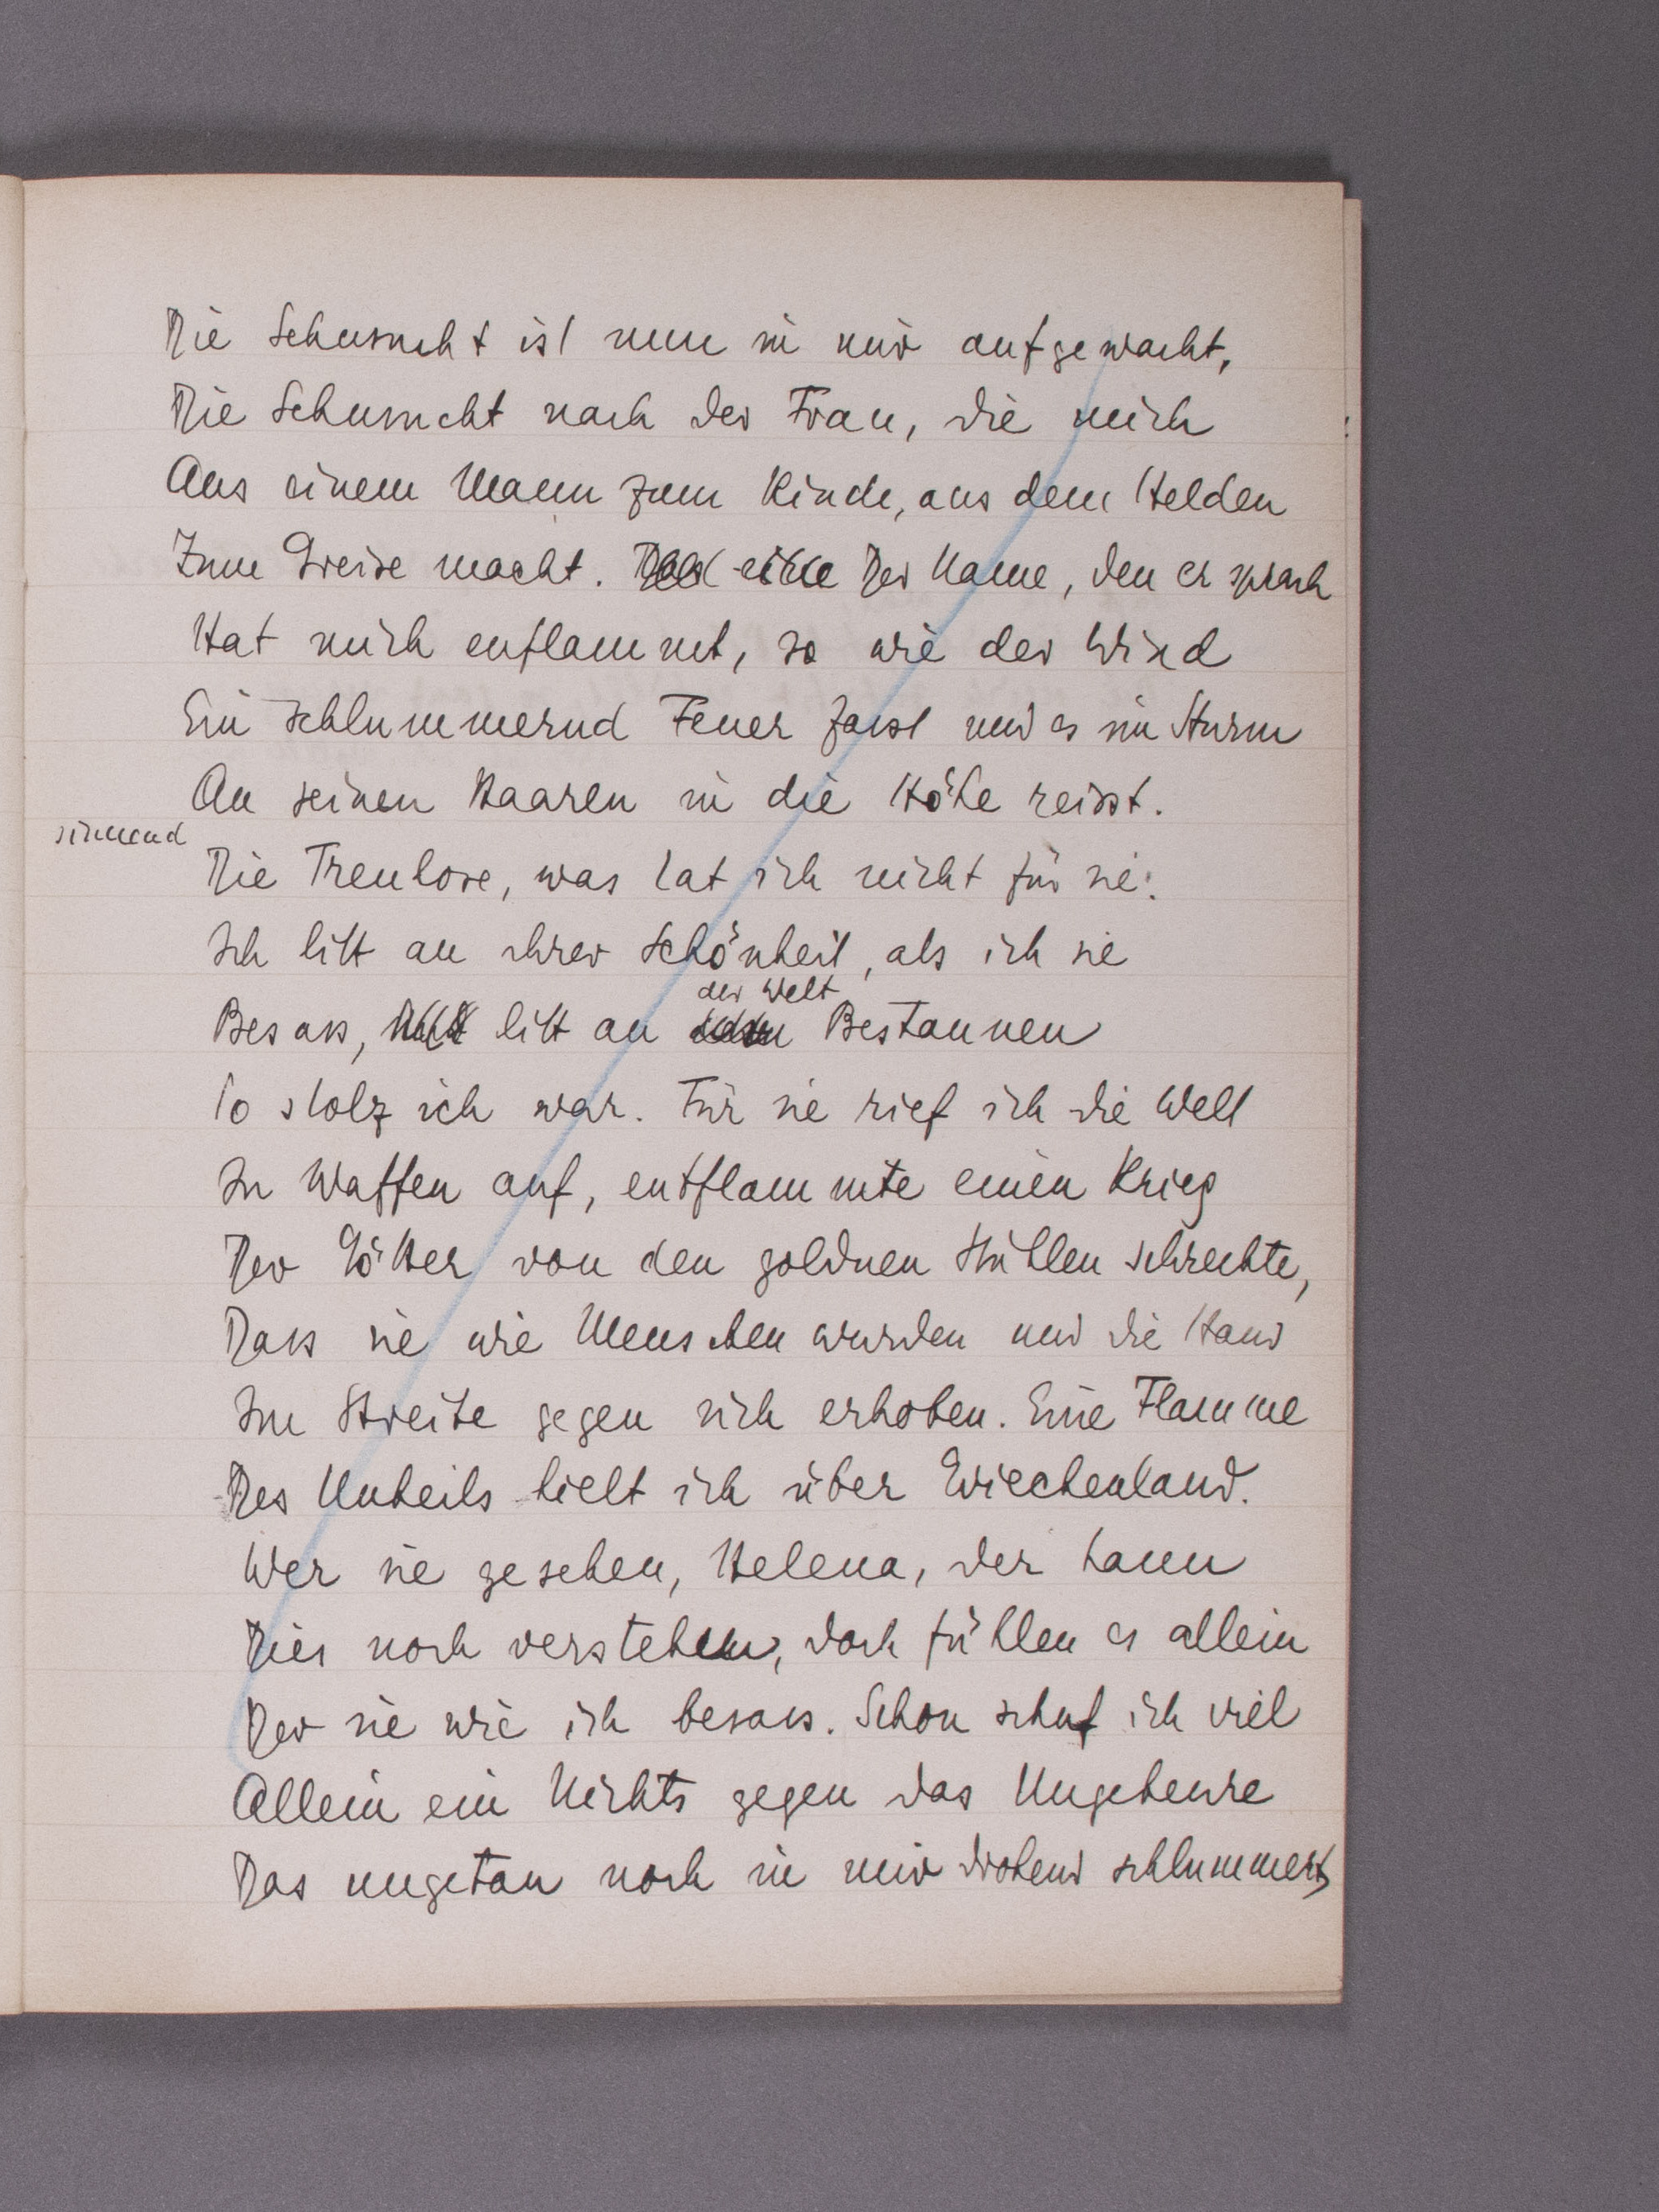 Die Sehnsucht ist nun in mir aufgewacht,
Die Sehnsucht nach der Frau, die mich
Aus einem Mann zum Kinde, aus dem Helden
Zum Greise macht. Der Name, den er sprach
Hat mich entflammt, so wie der Wind
Ein schlummernd Feuer fasst und es im Sturm
An seinen Haaren in die Höhe reisst.
sinnend
Die Treulose, was tat ich nicht für sie!
Ich litt an ihrer Schönheit, als ich sie
der Welt
Besass, litt an Bestaunen
So stolz ich war. Für sie rief ich die Welt
In Waffen auf, entflammte einen Krieg
Der Götter von den goldnen Stühlen schreckte,
Dass sie wie Menschen wurden und die Hand
Im Streite gegen sich erhoben. Eine Flamme
Des Unheils hielt ich über Griechenland.
Wer sie gesehen, Helena, der kann
Dies noch verstehen, doch fühlen es allein
Der sie wie ich besass. Schon schuf ich viel
Allein ein Nichts gegen das Ungeheure
Das ungetan noch in mir drohend schlummert,